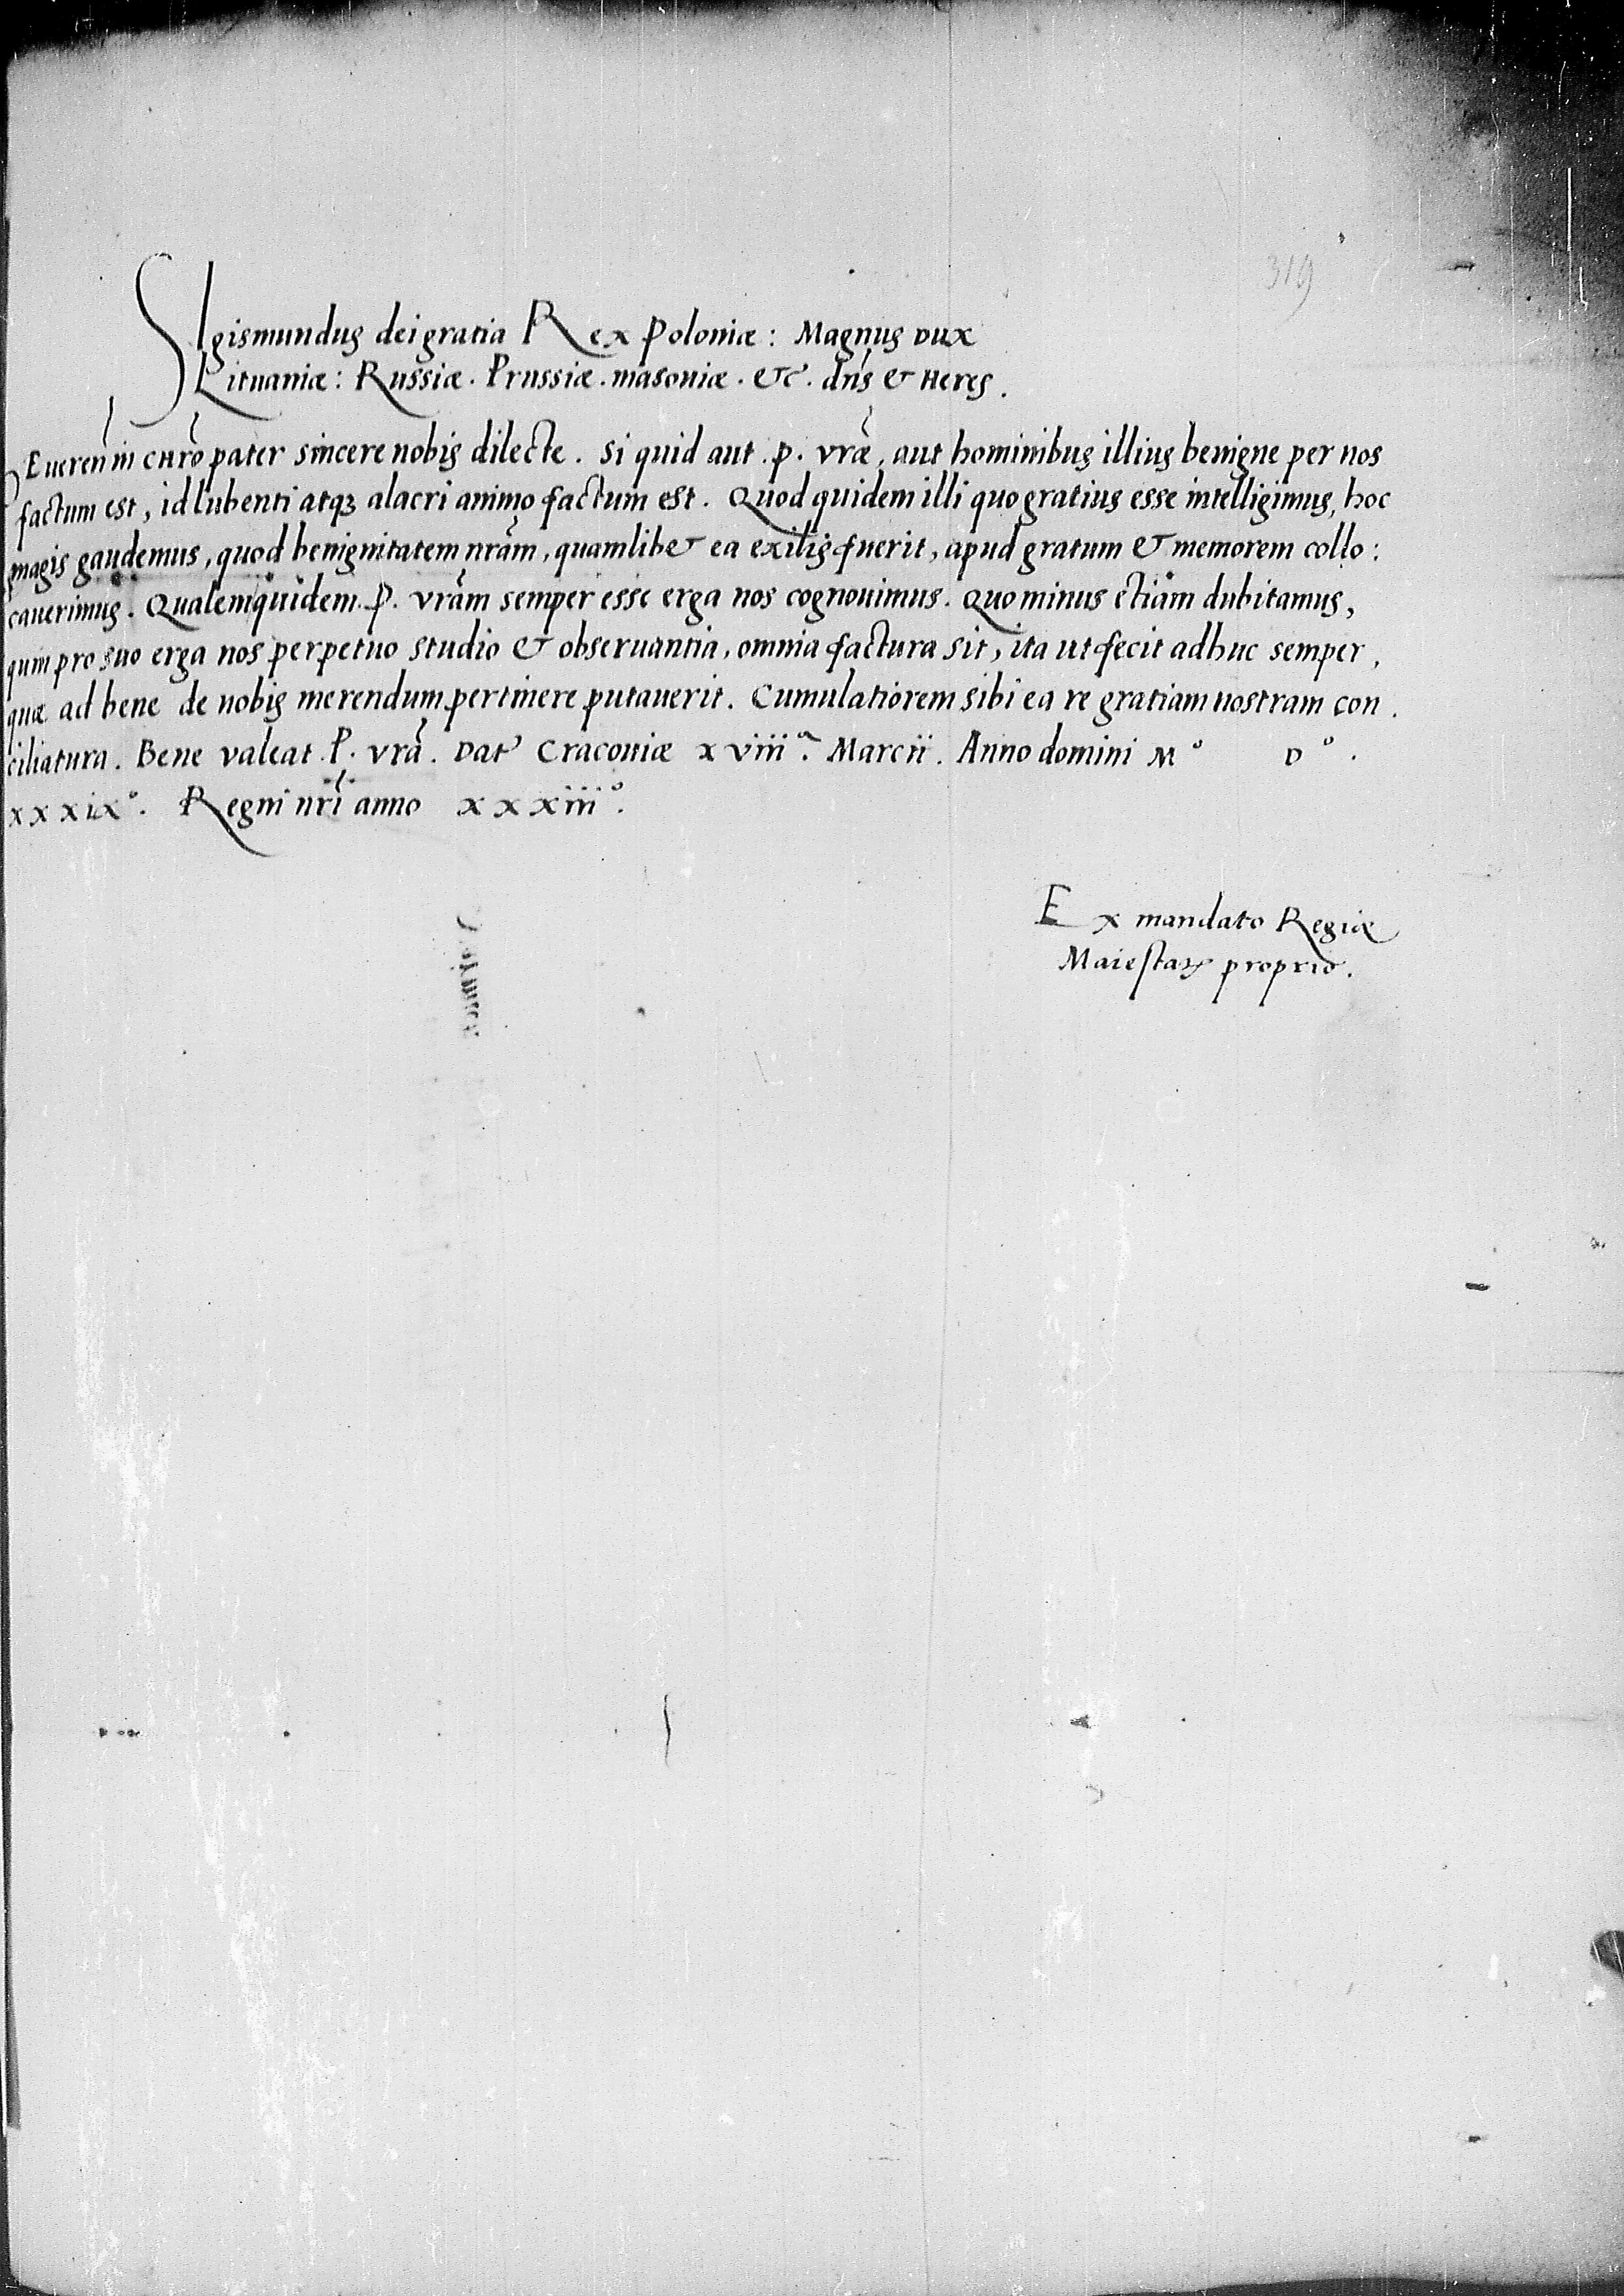 319
SIgismundus dei gratia Rex Poloniæ: Magnus Dux
Lituaniæ: Russiæ. Prussiæ. Masouiæ. &c. dns & Heres.
REueren in chro pater sincere nobis dilecte. Si quid aut .p. vræ, aut hominibus illius benigne per nos
factum est, id lubenti atqȝ alacri animo factum est. Quod quidem illi quo gratius esse intelligimus, hoc
magis gaudemus, quod benignitatem nram, quamlibet ea exilis fuerit, apud gratum & memorem collo:
cauerimus. Qualem quidem .p. vram semper esse erga nos cognouimus. Quo minus etiam dubitamus,
qum pro suo erga nos perpetuo studio & obseruantia, omnia factura sit, ita ut fecit adhuc semper,
quæ ad bene de nobis merendum pertinere putauerit. Cumulatiorem sibi ea re gratiam nostram con.
ciliatura. Bene valeat .P. vra. Dat Cracouiæ xviiiª. Marcii. Anno domini M° D°.
xxxix°. Regni nri anno xxxiii°.
Ex mandato Regiæ
Maiestatis proprio.